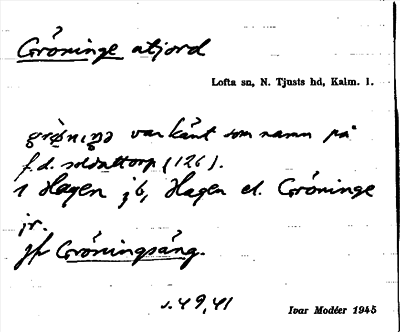 Gröninge utjord
Lofta sn, N. Tjusts hd, Kalm. l.
var känt som namn på
f.d. soldattorp (126).
1 Hagen j6, Hagen el. Gröninge
jr.
jfr Gröningsäng.
s. 49, 41
Ivar Modéer 1945